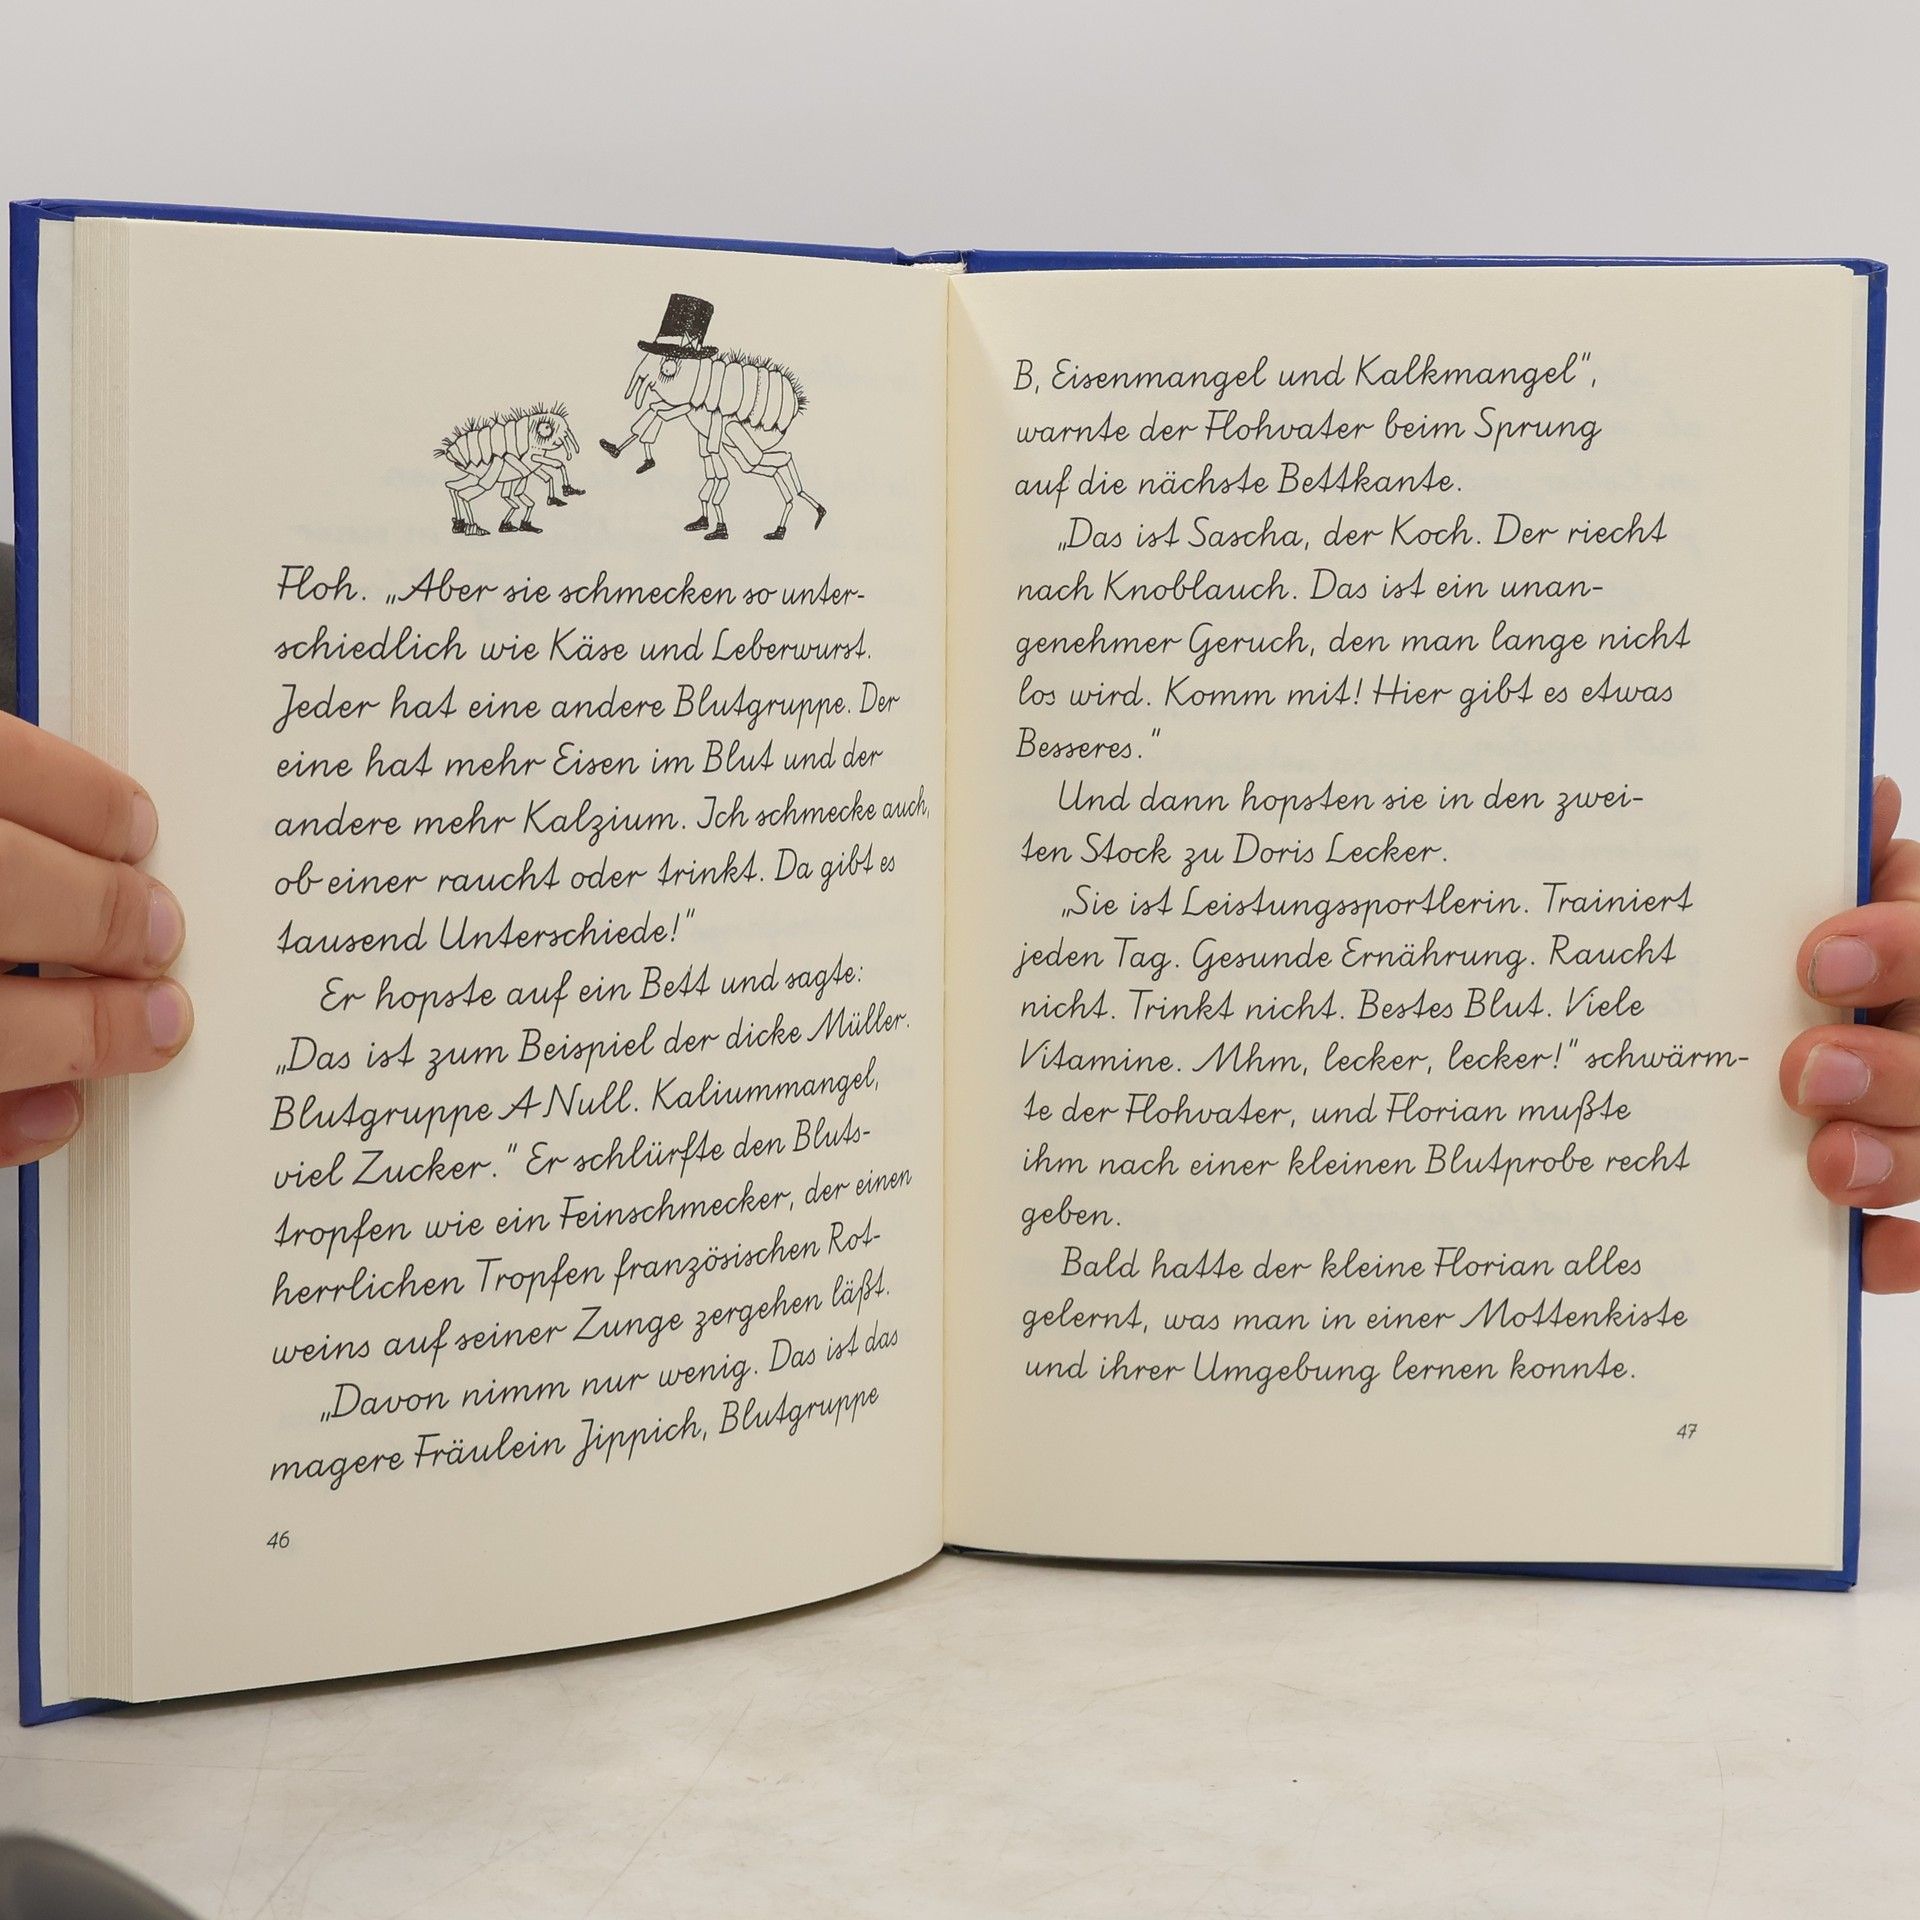 Floh. „Aber sie schmecken so unter-
schiedlich wie Käse und Leberwurst.
Jeder hat eine andere Blutgruppe. Der
eine hat mehr Eisen im Blut und der
andere mehr Kalzium. Ich schmecke auch,
ob einer raucht oder trinkt. Da gibt es
tausend Unterschiede!"
Er hopste auf ein Bett und sagte:
„Das ist zum Beispiel der dicke Müller.
Blutgruppe A Null. Kaliummangel,
viel Zucker." Er schlürfte den Bluts-
tropfen wie ein Feinschmecker, der einen
herrlichen Tropfen französischen Rot-
weins auf seiner Zunge zergehen läßt.
„Davon nimm nur wenig. Das ist das
magere Fräulein Jippich, Blutgruppe
46
B, Eisenmangel und Kalkmangel",
warnte der Flohvater beim Sprung
auf die nächste Bettkante.
„Das ist Sascha, der Koch. Der riecht
nach Knoblauch. Das ist ein unan-
genehmer Geruch, den man lange nicht
los wird. Komm mit! Hier gibt es etwas
Besseres."
Und dann hopsten sie in den zwei-
ten Stock zu Doris Lecker.
„Sie ist Leistungssportlerin. Trainiert
jeden Tag. Gesunde Ernährung. Raucht
nicht. Trinkt nicht. Bestes Blut. Viele
Vitamine. Mhm, lecker, lecker!" schwärm-
te der Flohvater, und Florian mußte
ihm nach einer kleinen Blutprobe recht
geben.
Bald hatte der kleine Florian alles
gelernt, was man in einer Mottenkiste
und ihrer Umgebung lernen konnte.
47